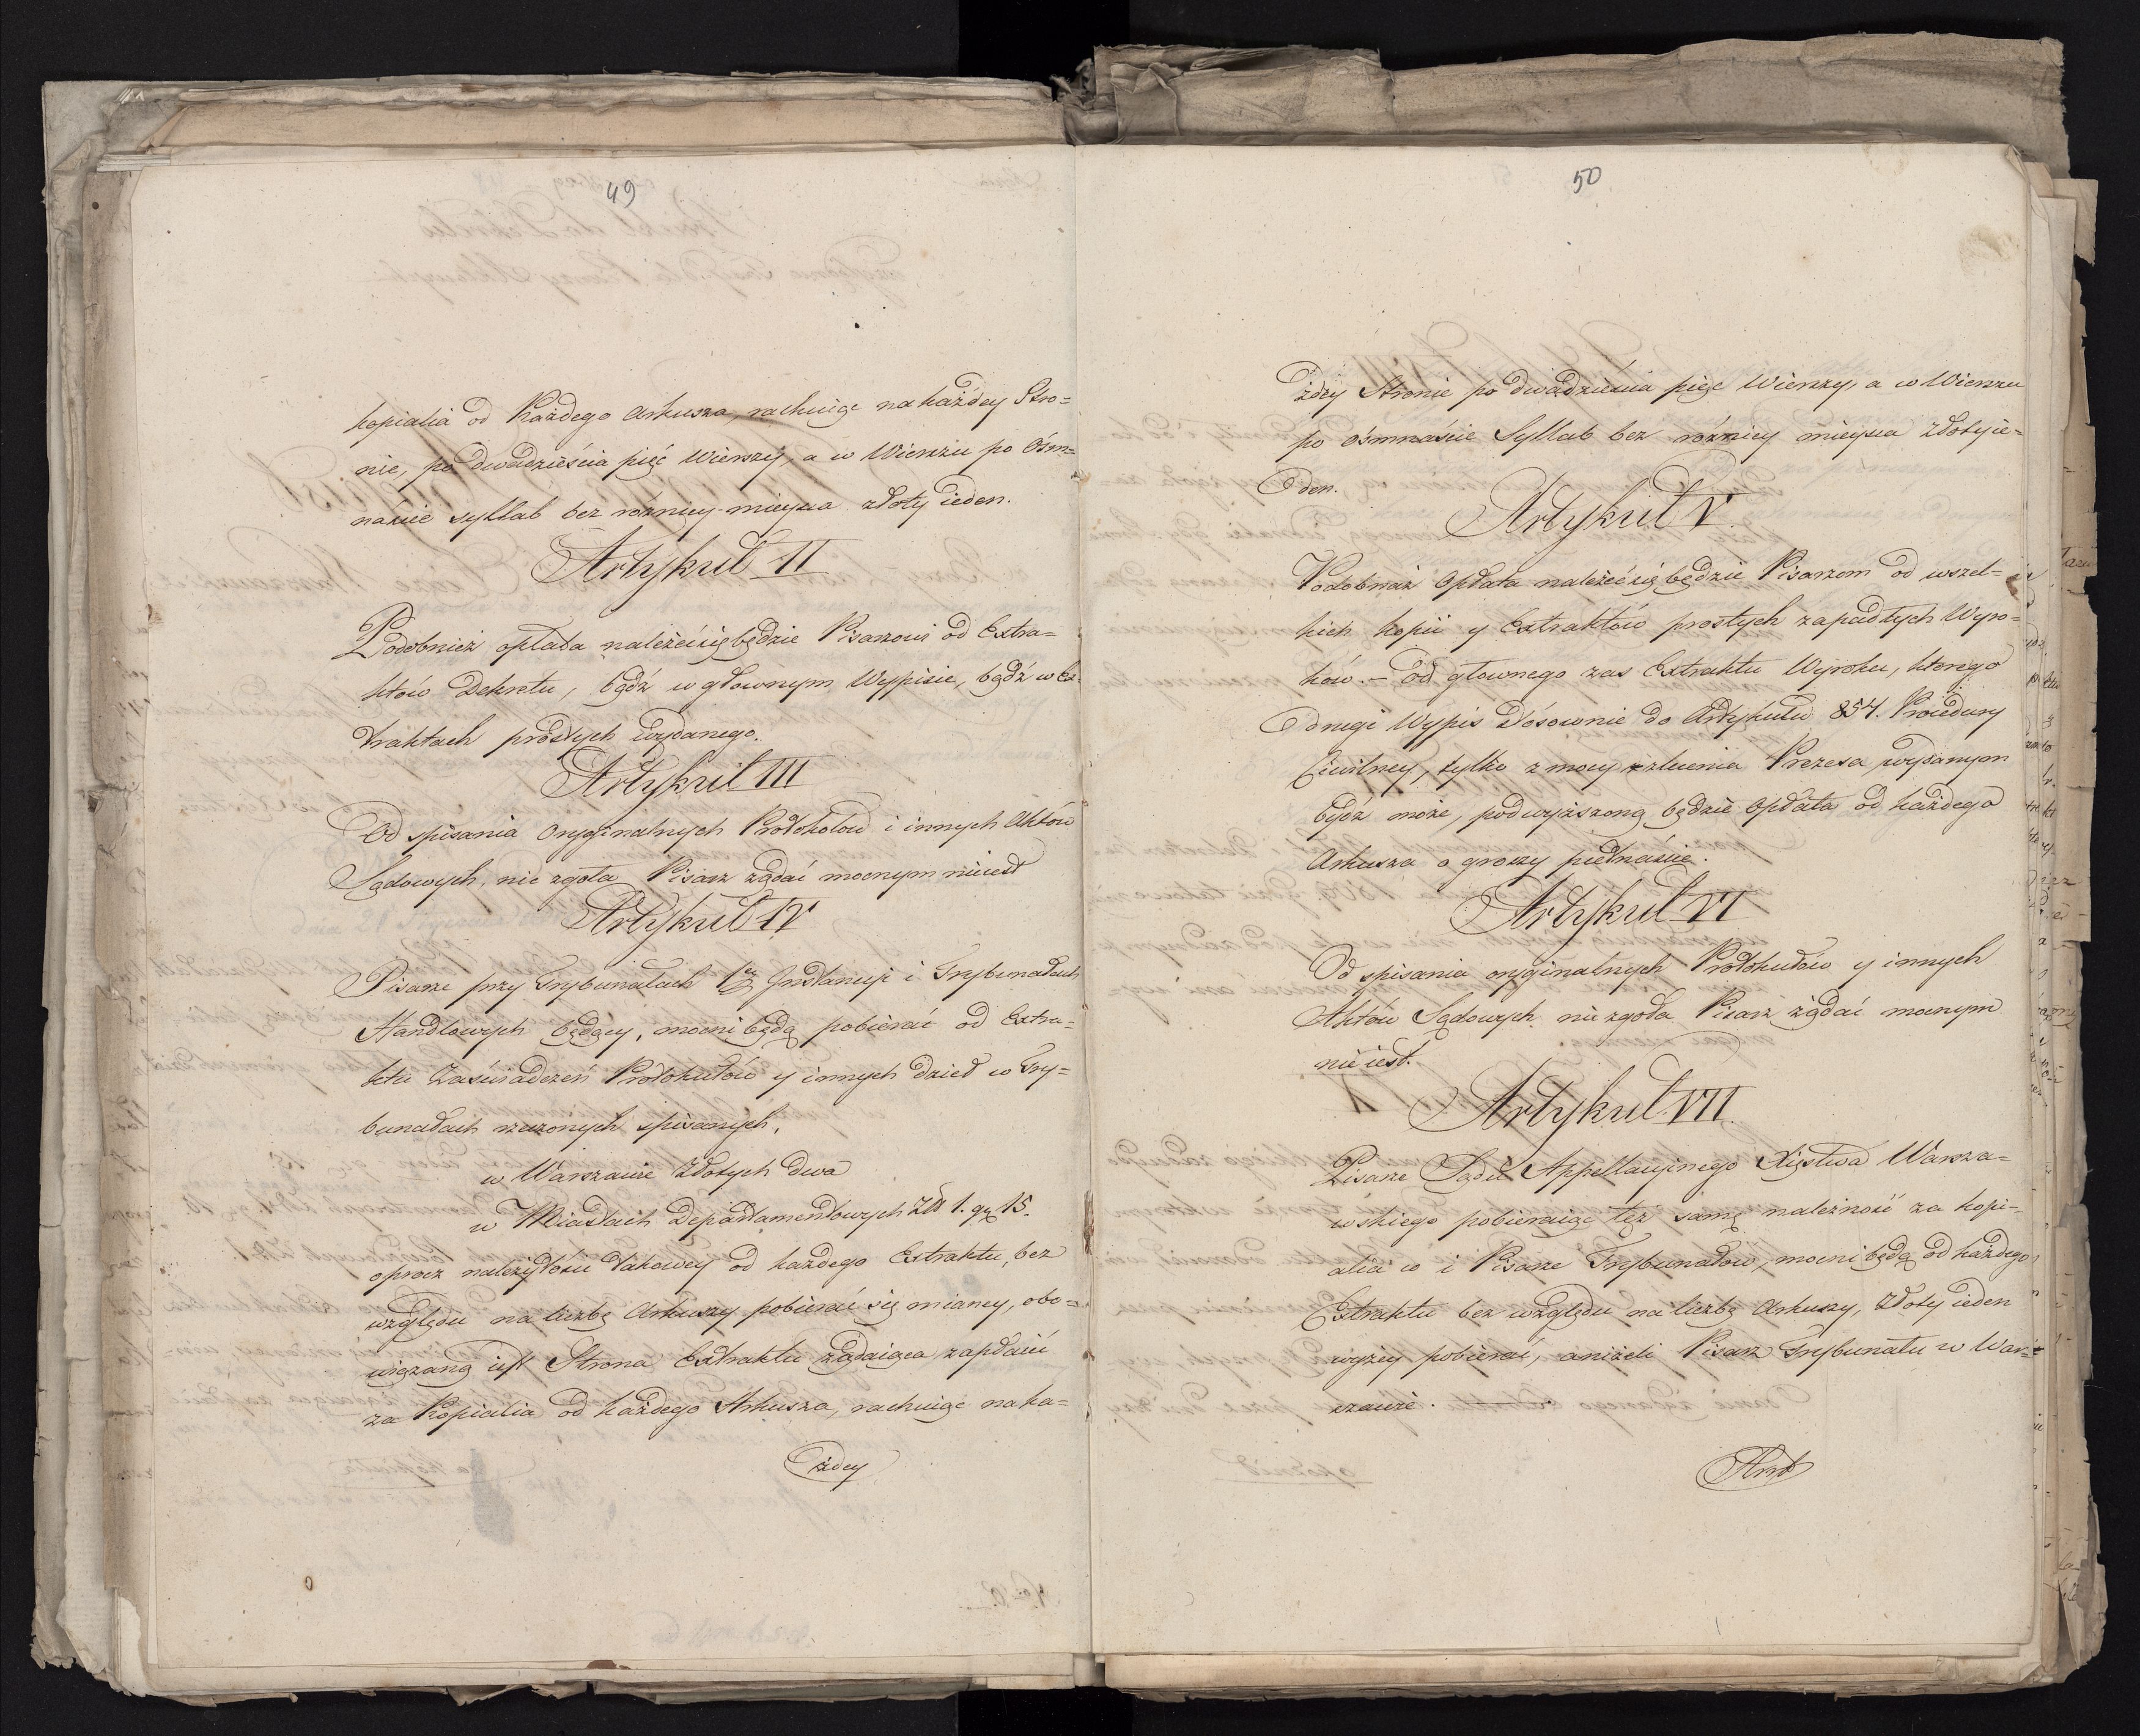 49
kopialia od Każdego Arkusza, rachuiąc na każdey Stro=
nie, po dwadzieścia pięć Wierszy, a w Wierszu po Ośm=
naście syllab bez różnicy mieysca złoty ieden.
Artykuł II
Podobnież opłata należeć się będzie Pisarzowi od Extra=
któw Dekretu, bądź w głownym Wypisie, bądź w Ex=
traktach prostych wydanego.
Artykuł III
Od spisania Oryginalnych Protokołow i innych Aktów
Sądowych, nic zgoła Pisarz żądać mocnym nieiest
Artykuł IV
Pisarze przy Trybunałach 1ey Instancyi i Trybunałach
Handlowych będący, mocni będą pobierać od Extra=
ktu Zaświadczeń Protokułów y innych dzieł w Try=
bunałach rzeczonych spisanych.
w Warszawie Złotych dwa
w Miastach Departamentowych Złł 1. gr 15.
oprocz należytości takowey od każdego Extraktu, bez
względu na liczbę Arkuszy pobierać się mianey, obo=
wiązaną iest Strona Extraktu żądaiąca zapłacić
za Kopialia od każdego Arkusza, rachuiąc na ka=
żdey
50
żdey Stronie po dwadzieścia pięć Wierszy, a w Wierszu
po ośmnaście Syllab bez różnicy mieysca Złoty ie=
den.
Artykuł V.
Podobnaż Opłata należeć się będzie Pisarzom od wszel=
kich kopii y Extraktów prostych zapadłych Wyro=
ków. – Od głownego zas Extraktu Wyroku, ktorego
drugi Wypis stosownie do Artykułu 854. Procedury
Cywilney, tylko z mocy zlecenia Prezesa wydanym
bydź może, podwyższoną będzie Opłata od każdego
Arkusza o groszy piętnaście.
Artykuł VI
Od spisania oryginalnych Protokułów y innych
Aktów Sądowych nic zgoła Pisarz żądać mocnym
nieiest.
Artykuł VII.
Pisarze Sądu Appellacyinego Xięstwa Warsza=
wskiego pobieraiąc też samą należność za kopi=
alia co i Pisarze Trybunałow, mocni będą od każdego
Extraktu bez względu na liczbę Arkuszy, Złoty ieden
wyżey pobierać, aniżeli Pisarz Trybunału w War=
szawie.
Art